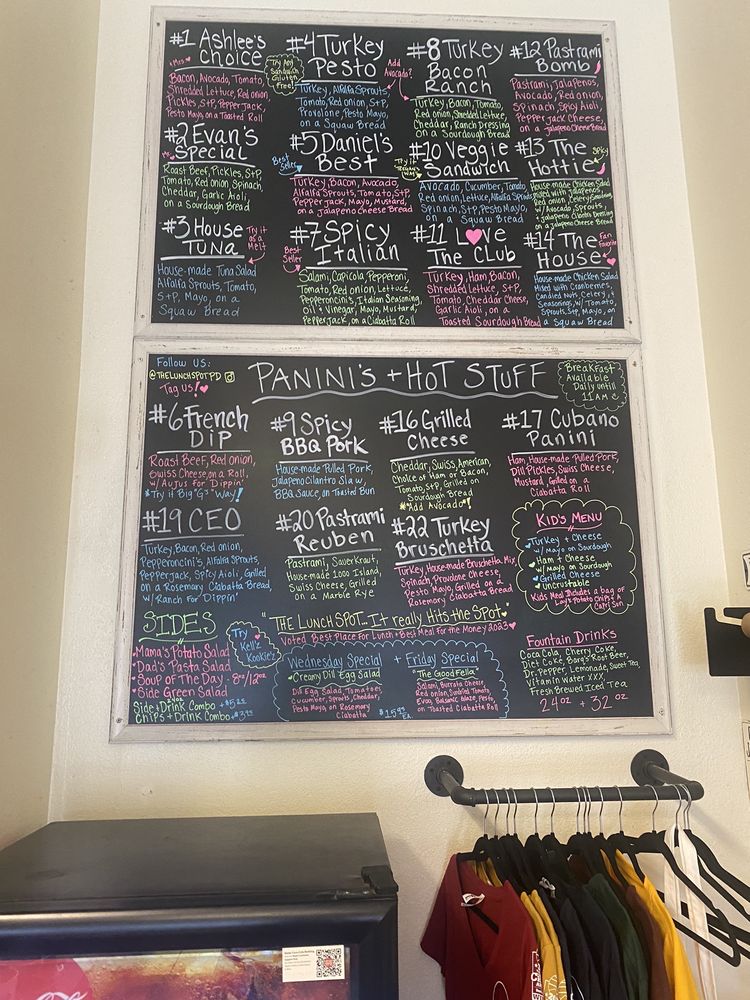 #1 Ashlee's
Choice
"Mrs"
Bacon, Avocado, Tomato,
Shredded Lettuce, Red onion,
Pickles, S+P, Pepper Jack,
Pesto Mayo on a Toasted Roll
#2 Evan's
Special
Roast Beef, Pickles, S+P,
Tomato, Red onion, Spinach,
Cheddar, Garlic Aioli,
on a Sourdough Bread
#3 House
Tuna
Try it
as a
Melt
House-made Tuna Salad
Alfalfa Sprouts, Tomato,
S+P, Mayo, on a
Squaw Bread
#4 Turkey
Pesto
Try Any
Sandwich
Gluten
Free!
Add
Avocado?
Turkey, Alfalfa Sprouts,
Tomato, Red onion, S+P,
Provolone, Pesto Mayo,
on a Squaw Bread
#5 Daniel's
Best
Best
Seller
Turkey, Bacon, Avocado,
Alfalfa Sprouts, Tomato, S+P,
Pepper Jack, Mayo, Mustard,
on a Jalapeno Cheese Bread
#7 Spicy
Italian
Best
Seller
Salami, Capicola, Pepperoni,
Tomato, Red onion, Lettuce,
Pepperoncinis, Italian Seasoning,
Oil + Vinegar, Mayo, Mustard,
Pepper Jack, on a Ciabatta Roll
#8 Turkey
Bacon
Ranch
Turkey, Bacon, Tomato,
Red onion, Shredded Lettuce,
Cheddar, Ranch Dressing
on a Sourdough Bread
#10 Veggie
Sandwich
Try it
Way
Avocado, Cucumber, Tomato,
Red onion, Lettuce, Alfalfa Sprouts
Spinach, S+P, Pesto Mayo,
on a Squaw Bread
#11 Love
The Club
Turkey, Ham, Bacon,
Shredded Lettuce, S+P,
Tomato, Cheddar Cheese,
Garlic Aioli, on a
Toasted Sourdough Bread
#12 Pastrami
Bomb
Pastrami, Jalapenos,
Avocado, Red onion,
Spinach, Spicy Aioli,
Pepper Jack Cheese,
on a Jalapeno Cheese Bread
#13 The
Hottie
Spicy
House made Chicken Salad
Mixed with Jalapenos,
Red onion, Celery, Seasonings
w/ Avocado, Sprouts,
+ Jalapeno Cilantro Dressing
on a Jalapeno Cheese Bread
#14 The
House
Fan
Favorite
House-made Chicken Salad
Mixed with Cranberries,
Candied Nuts, Celery, +
Seasonings, w/ Tomato,
Sprouts, S+P, Mayo, on
a Squaw Bread
Follow us:
@THELUNCHSPOTPD
Tag us!
PANINI'S + HOT STUFF
Breakfast
Available
Daily until
11AM
#6 French
Dip
Roast Beef, Red onion,
Swiss Cheese, on a Roll,
w/ Aujus for Dippin'
*Try it Big "G's" Way!
#9 Spicy
BBQ Pork
House-made Pulled Pork,
Jalapeno Cilantro Slaw,
BBQ Sauce, on Toasted Bun
#16 Grilled
Cheese
Cheddar, Swiss, American,
Choice of Ham or Bacon,
Tomato, S+P, Grilled on
Sourdough Bread
*Add Avocado*!
#17 Cubano
Panini
Ham, House-made Pulled Pork,
Dill Pickles, Swiss Cheese,
Mustard, Grilled on a
Ciabatta Roll
#19 CEO
Turkey, Bacon, Red onion,
Pepperoncini's, Alfalfa Sprouts,
Pepperjack, Spicy Aioli, Grilled
on a Rosemary Ciabatta Bread
w/ Ranch for Dippin'
#20 Pastrami
Reuben
Pastrami, Sauerkraut,
House-made 1000 Island,
Swiss Cheese, Grilled
on a Marble Rye
#22 Turkey
Bruschetta
Turkey, House-made Bruschetta Mix,
Spinach, Provolone Cheese,
Pesto Mayo, Grilled on a
Rosemary Ciabatta Bread
Kid's Menu
Turkey + Cheese
w/ Mayo on Sourdough
Ham + Cheese
w/ Mayo on Sourdough
Grilled Cheese
uncrustable
Kids Meal Includes a bag of
Lay's Potato Chips + a
Capri Sun
SIDES
Mama's Potato Salad
Dad's Pasta Salad
Soup of The Day - 8oz/12oz
Side Green Salad
Side + Drink Combo +$5.25
Chips + Drink Combo
Try
Kellz
Kookies
"THE LUNCH SPOT... It really Hits the Spot"
Voted Best Place For Lunch + Best Meal For the Money 2023
Wednesday Special
"Creamy Dill Egg Salad"
Dill Egg Salad, Tomatoes,
Cucumber, Sprouts, Cheddar,
Pesto Mayo, on Rosemary
Ciabatta
+ Friday Special
"The Good Fella"
Salami, Burrata Cheese,
Red onion, Sundried Tomato,
Evoo, Balsamic Glaze, Pesto,
on Toasted Ciabatta Roll
Ea.
Fountain Drinks
Coca Cola, Cherry Coke,
Diet Coke, Barq's Root Beer,
Dr. Pepper, Lemonade, Sweet Tea
Vitamin Water XXX,
Fresh Brewed Iced Tea
24oz + 32oz